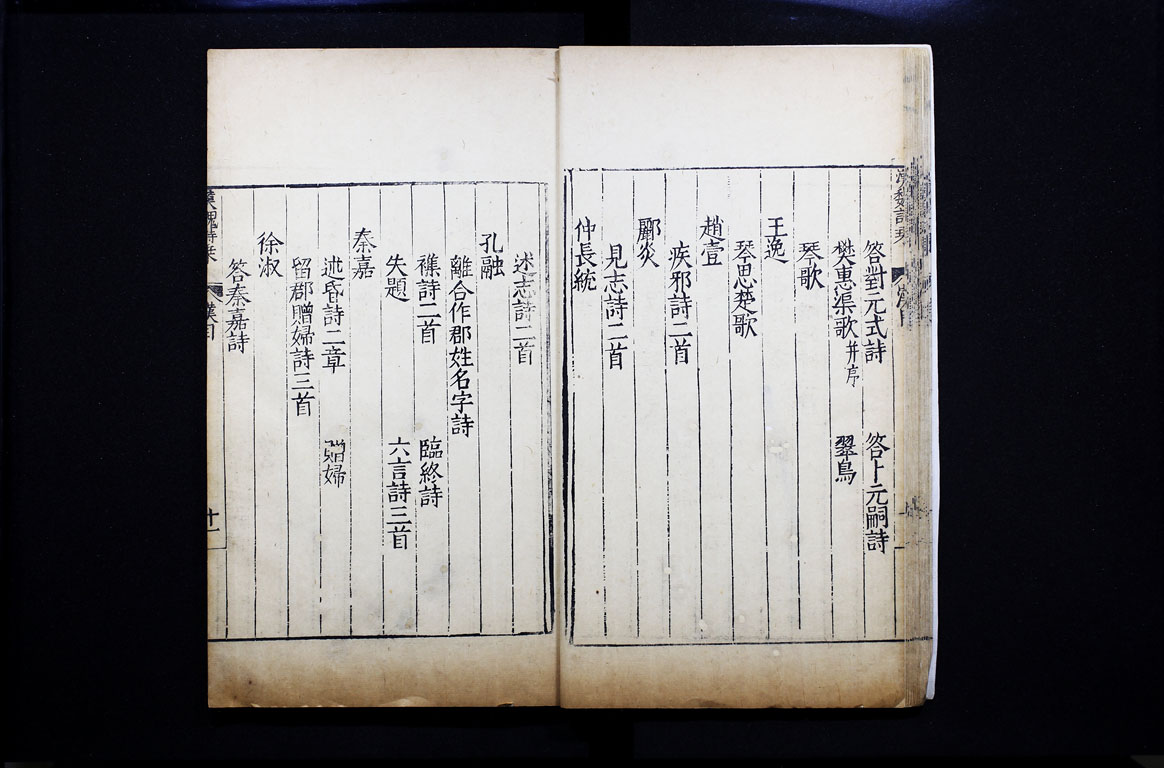 答對元式詩 答卜元嗣詩
樊惠渠歌并序 翠鳥
琴歌
王逸
琴思楚歌
趙壹
疾邪詩二首
酈炎
見志詩二首
仲長統
述志詩二首
孔融
離合作郡姓名字詩
襍詩二首 臨終詩
失題 六言詩三首
秦嘉
述昏詩二章 贈婦
留郡贈婦詩三首
徐淑
答秦嘉詩
漢魏詩 漢目 十一